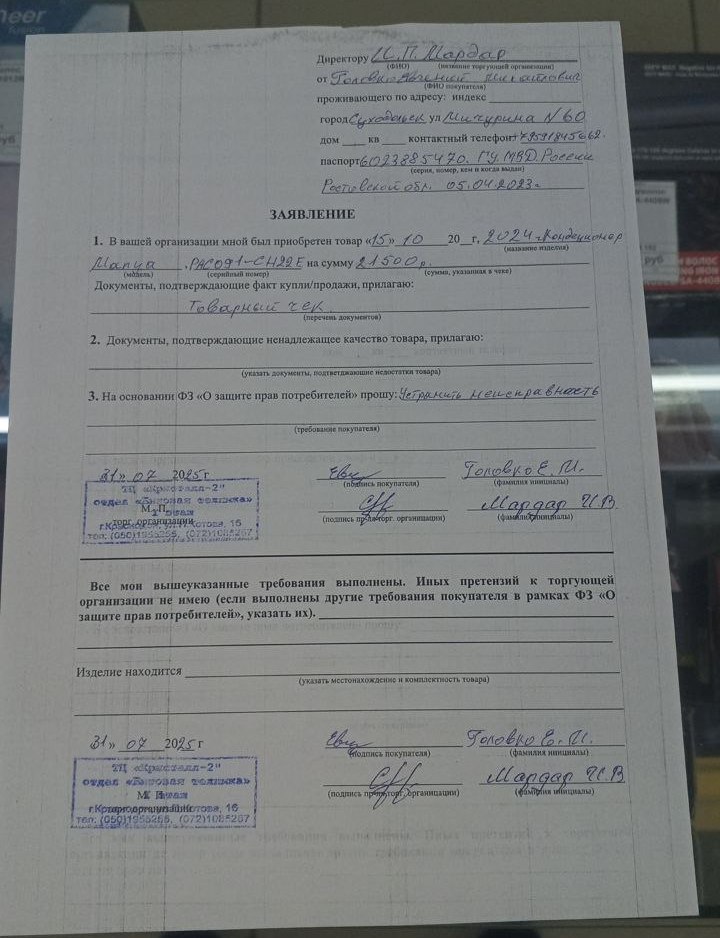 Директору И.П. Мардар
(ФИО) (название торгующей организации)
от Головко Евгений Михайлович
(ФИО покупателя)
проживающего по адресу: индекс
город Суходольск ул Мичурина N 60
дом ____ кв ____ контактный телефон +79591845662.
паспорт 6023885470. ГУ МВД России
(серия, номер, кем и когда выдан)
Ростовской обл. 05.04.2023г
ЗАЯВЛЕНИЕ
1. В вашей организации мной был приобретен товар «15» 10 20__г, 2024г. Кондиционер
(название изделия)
, PAC091-CH22E на сумму 21500 р.
(модель) (серийный номер) (сумма, указанная в чеке)
Документы, подтверждающие факт купли/продажи, прилагаю:
Товарный чек
(перечень документов)
2. Документы, подтверждающие ненадлежащее качество товара, прилагаю:
(указать документы, подтветджающие недостатки товара)
3. На основании ФЗ «О защите прав потребителей» прошу: Устранить неисправность
(требование покупателя)
31» 07 2025 г Головко Е. М.
(подпись покупателя) (фамилия инициалы)
ТЦ «Кристалл-2"
отдел «Бытовая техника»
М. П.
этаж
торг. организации
тел: (050)1955255, (072)1085267
Мардар И.В
(подпись пр-ля торг. организации) (фамилия инициалы)
Все мои вышеуказанные требования выполнены. Иных претензий к торгующей
организации не имею (если выполнены другие требования покупателя в рамках ФЗ «О
защите прав потребителей», указать их).
Изделие находится
(указать местонахождение и комплектность товара)
31» 07 2025 г Головко Е. М.
(подпись покупателя) (фамилия инициалы)
ТЦ «Кристалл-2"
отдел «Бытовая техника»
М. П.
этаж
торг. организации
тел: (050)1955255, (072)1085267
Мардар И.В
(подпись пр-ля торг. организации) (фамилия инициалы)